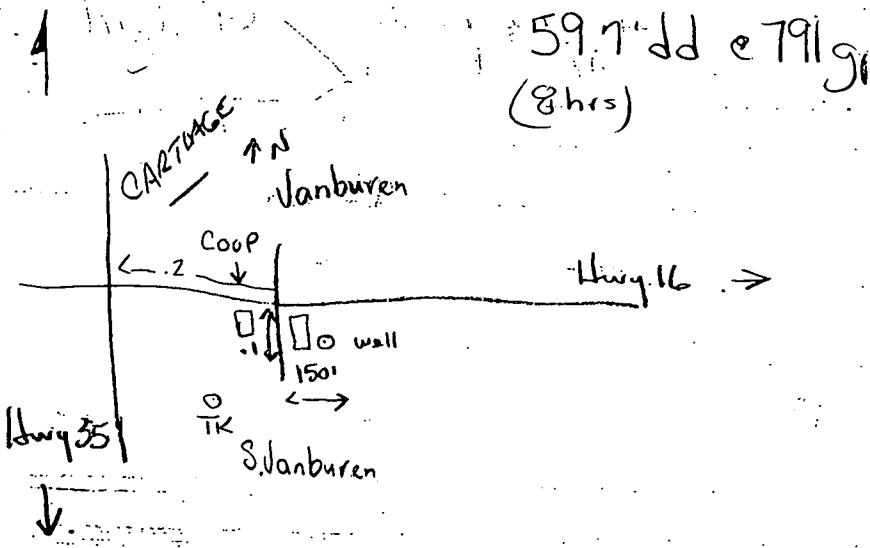 59.7' dd @ 791 g
(8 hrs)
CARTHAGE
↑ N
Vanburen
COOP
← .2
Hwy 16 →
.1
well
150'
Hwy 35
TK
S. Vanburen